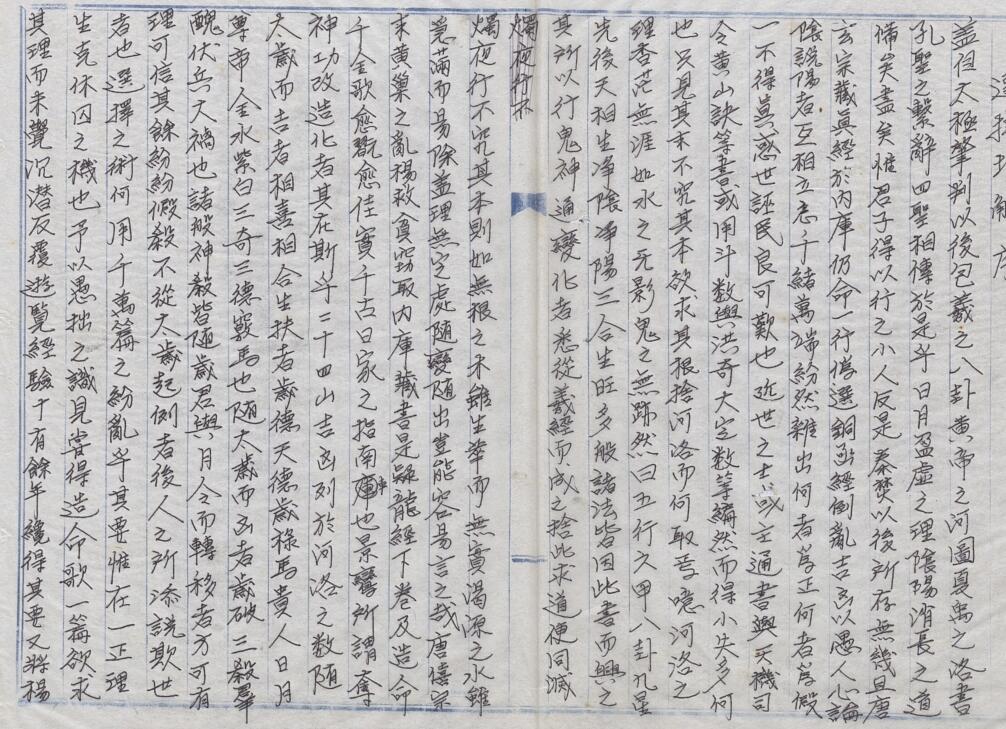 選擇求解序
蓋但太極肇判以後包羲之八卦黃帝之河圖夏禹之洛書
孔聖之繫辭四聖相傳於是乎日月盈虛之理陰陽消長之道
備矣盡矣惟君子得以行之小人反是秦焚以後所存無幾且唐
玄宗藏眞經於內庫仍命一行僞選銅函經倒亂吉凶以愚人心論
陰說陽者互相立意千緒萬端紛然雜出何者爲正何者爲假
一不得眞惑世誣民良可歎也近世之士或主通書與天機司
令黃山訣等書或用斗数與洪奇大定数等編然而得小失多何
也只見其末不究其本欲求其根捨河洛而何取焉噫河洛之
理杳茫無涯如水之无影鬼之無跡然曰五行六甲八卦九星
先後天相生净陰净陽三合生旺多般諸法皆因此書而興之
其所以行鬼神通變化者悉從羲經而成之捨此求道便同滅
燭夜行不
燭夜行不究其本則如無根之木雖生華而無實渴源之水雖
若滿而易除盖理無定處随變随出豈能容易言之哉唐僖宗
末黃巢之亂楊救貧窃取內庫藏書是疑龍經下卷及造命
千金歌愈翫愈佳實千古日家之指南車也景鸞所謂奪
神功改造化者其在斯乎二十四山吉凶列於河洛之数随
太歲而吉者相喜相合生扶者歲德天德歲祿馬貴人日月
尊帝金水紫白三奇三德竅馬也随太歲而凶者歲破三殺羣
醜伏兵大禍也諸般神殺皆随歲君與月令而轉移者方可有
理可信其餘紛紛假殺不從太歲起例者後人之所添說欺世
者也選擇之術何用千萬篇之紛亂乎其要惟在一正理
生克休囚之機也予以愚拙之識見嘗得造命歌一篇欲求
其理而未覺沉潜反覆遊覽經驗十有餘年纔得其要又將楊